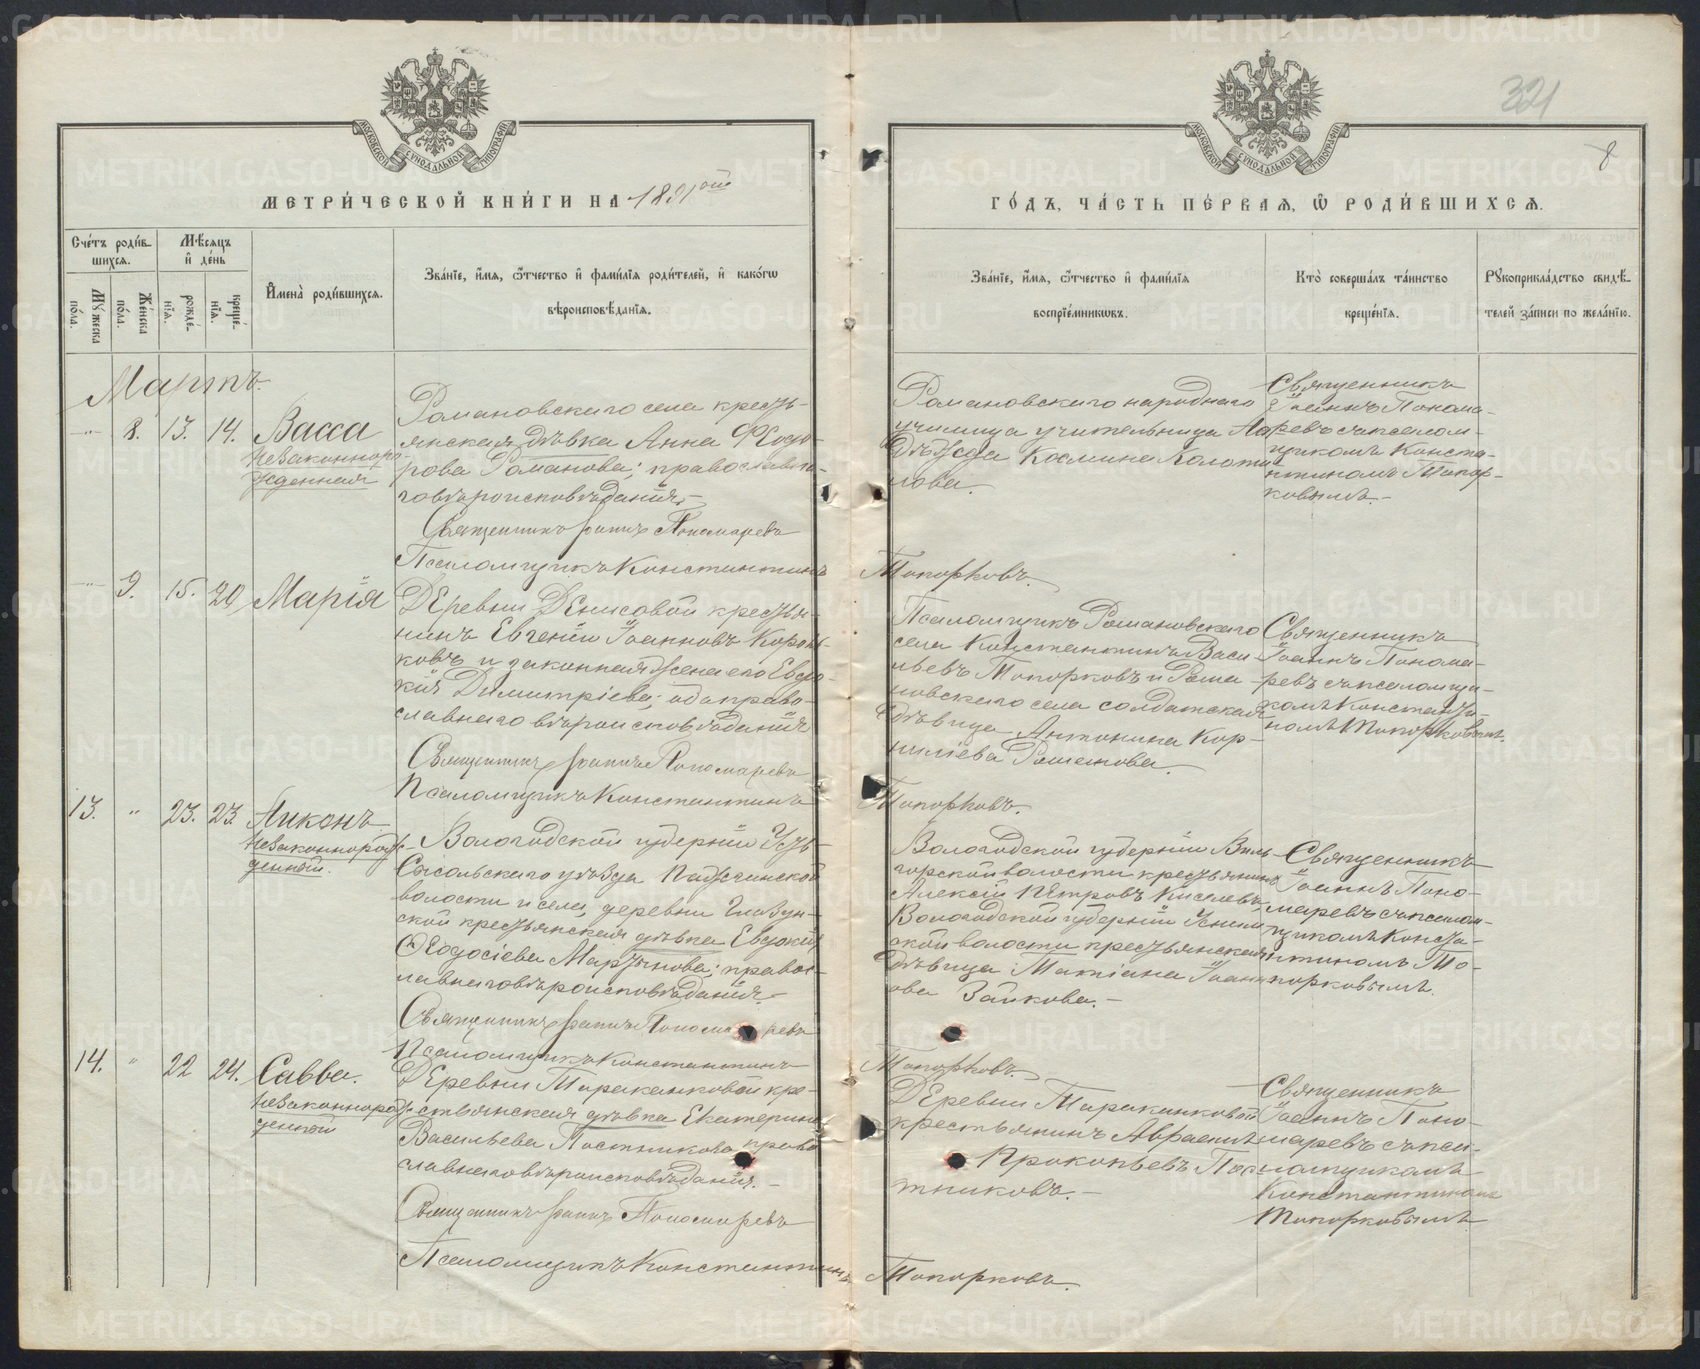 321
8
МОСКОВСКОЙ СѴНОДАЛЬНОЙ ТИПОГРАФІИ
МОСКОВСКОЙ СѴНОДАЛЬНОЙ ТИПОГРАФІИ
МЕТРИ́ЧЕСКОЙ КНИ́ГИ НА 1891ый
ГО́ДЪ, ЧА́СТЬ ПЕ́РВАЯ, Ѿ РОДИ́ВШИХСЯ.
Сче́тъ роди́в-
шихся.
Мѣсяцъ
и҆ де́нь
Мꙋ́жеска
по́ла.
Же́нска
по́ла.
рожде́-
нїя.
креще́-
нїя.
И҆мена̀ роди́вшихся.
Зва́нїе, и҆́мя, ѻ҆́тчество и҆ фами́лїя роди́телей, и҆ како́гѡ
вѣроисповѣ́данїя.
Зва́нїе, и҆́мя, ѻ҆́тчество и҆ фами́лїя
воспрїе́мникѡвъ.
Кто̀ соверша́лъ та́инство
креще́нїя.
Рꙋкоприкла́дство свидѣ́-
телей за́писи по жела́нїю.
Мартъ.
8. 13. 14. Васса
незаконноро-
жденная
Романовскаго села кресть-
янская дѣвка Анна Ѳеодо-
рова Романова; православна-
го вѣроисповѣданія.-
Священникъ Іоаннъ Пономаревъ
Псаломщикъ Константинъ
Романовскаго народнаго
училища учительница На-
дѣжда Космина Колоти-
лова.
Топорковъ.
Священникъ
Іоаннъ Понома-
ревъ съ псалом-
щикомъ Конста-
нтиномъ Топор-
ковымъ.-
9. 15. 20 Марія
Деревни Денисовой крестья-
нинъ Евгеній Іоанновъ Корот-
ковъ и законная жена его Евдо-
кія Димитріева; оба право-
славнаго вѣроисповѣданія
Священникъ Іоаннъ Пономаревъ
Псаломщикъ Константинъ
Псаломщикъ Романовскаго
села Константинъ Васи-
льевъ Топорковъ и Рома-
новскаго села солдатская
дѣвица Антонина Кор-
нилiева Романова.
Топорковъ.
Священникъ
Іоаннъ Понома-
ревъ съ псаломщи-
комъ Константи-
номъ Топорковымъ.
13. " 23. 23. Никонъ
незаконнорож-
денный.
Вологодской губерніи Усть-
Сысольскаго уѣзда
волости и села, деревни
ской крестьянская дѣвка Евдокія
Ѳеодосіева Мартынова; правос-
лавнаго вѣроисповѣданія.-
Священникъ Іоаннъ Пономаревъ
Псаломщикъ Константинъ
Вологодской губерніи Виль-
горской волости крестьянинъ
Алексій Петровъ Киселевъ,
Вологодской губерніи
ской волости крестьянская
дѣвица Татіана Іоанн-
ова Зайкова.-
Топорковъ.
Священникъ
Іоаннъ Поно-
маревъ съ псалом-
щикомъ Конста-
нтиномъ То-
порковымъ.
14. " 22 24. Савва.
незаконнорож-
денный
Деревни Тараканковой кре-
стьянская дѣвка Екатерина
Васильева Постникова право
славнаго вѣроисповѣданія.-
Священникъ Іоаннъ Пономаревъ
Псаломщикъ Константинъ
Деревни Тараканковой
крестьянинъ Авраамій
Прокопьевъ Пос-
тниковъ.-
Топорковъ.
Священникъ
Іоаннъ Поно-
маревъ съ пса-
ломщикомъ
Константиномъ
Топорковымъ
METRIKI.GASO-URAL.RU